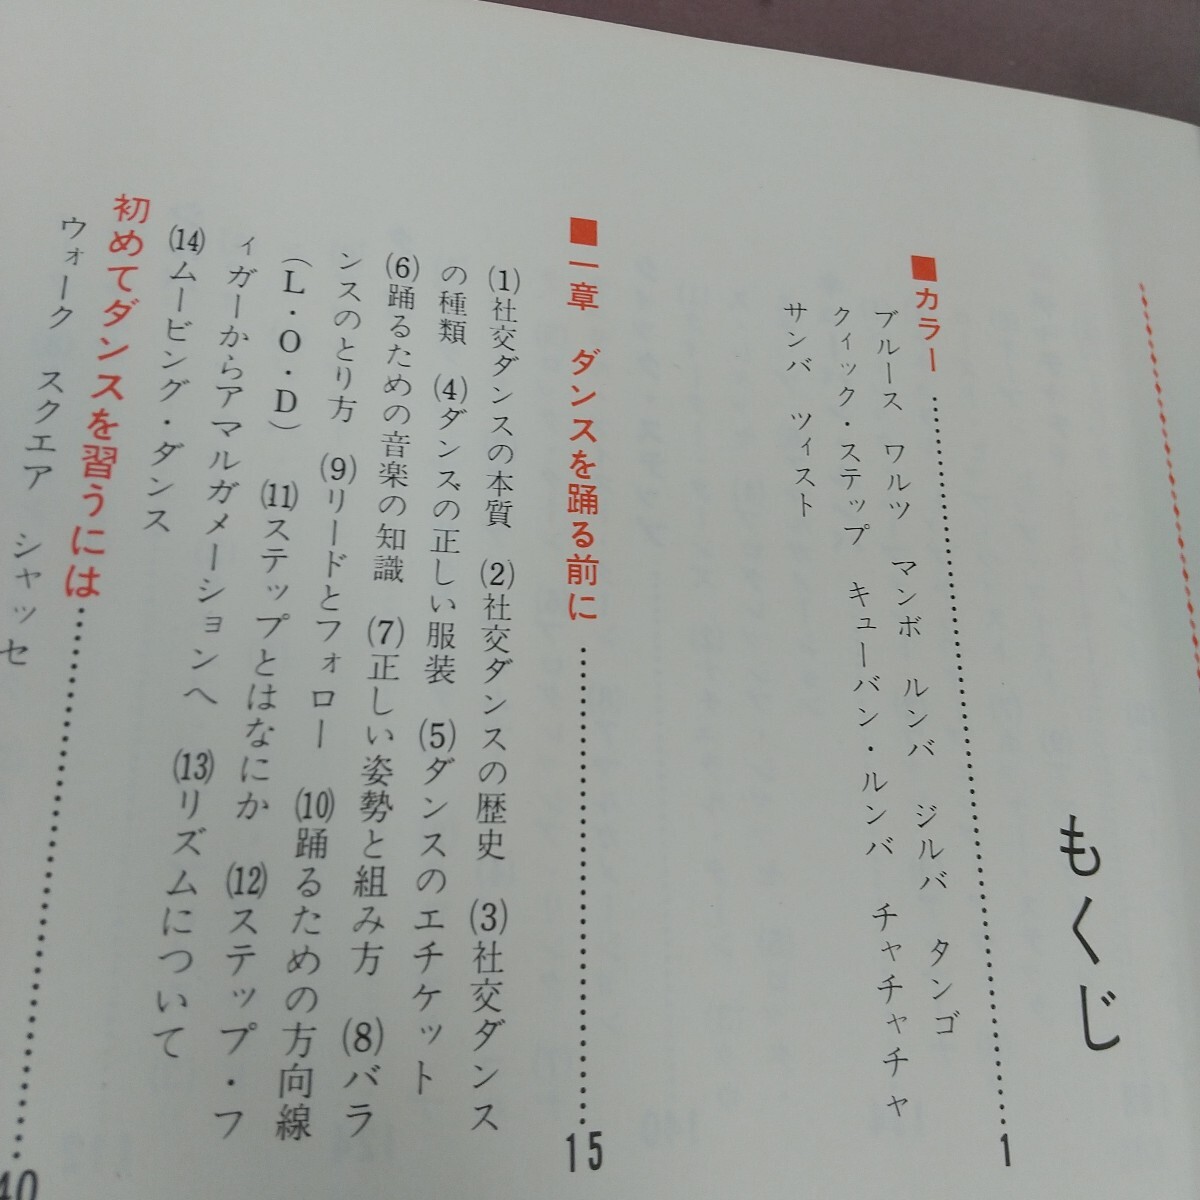 もくじ
■カラー…………1
ブルース ワルツ マンボ ルンバ ジルバ タンゴ
クィック・ステップ キューバン・ルンバ チャチャチャ
サンバ ツィスト
■一章 ダンスを踊る前に…………15
(1)社交ダンスの本質 (2)社交ダンスの歴史 (3)社交ダンス
の種類 (4)ダンスの正しい服装 (5)ダンスのエチケット
(6)踊るための音楽の知識 (7)正しい姿勢と組み方 (8)バラ
ンスのとり方 (9)リードとフォロー (10)踊るための方向線
(L・O・D) (11)ステップとはなにか (12)ステップ・フ
ィガーからアマルガメーションへ (13)リズムについて
(14)ムービング・ダンス
初めてダンスを習うには…………40
ウォーク スクエア シャッセ